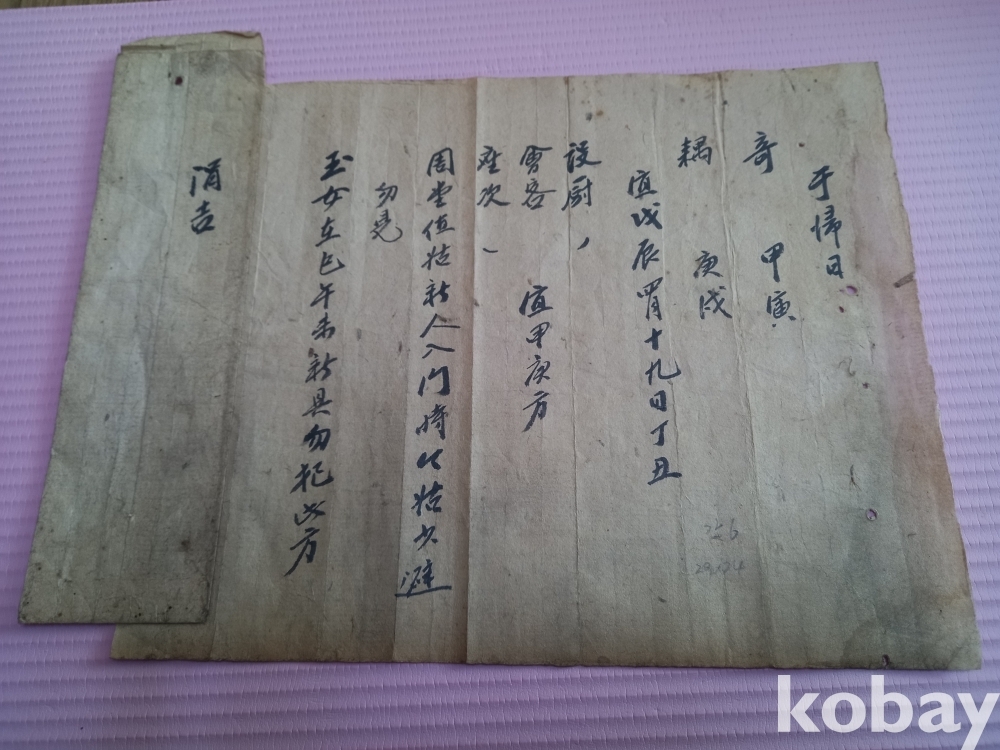 于歸日
奇 甲寅
耦 庚戌
宜戊辰四月十九日丁丑
設厨、
會客 宜甲庚方
座次、
周堂值姑新人入門時以姑少避
勿見
玉女在巳午未新具勿犯此方
涓吉
256
kobay